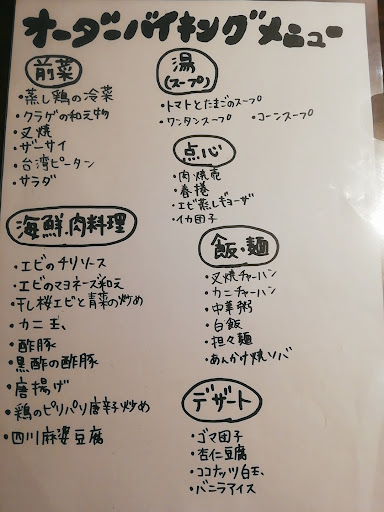 オーダーバイキングメニュー
前菜
・蒸し鶏の冷菜
・クラゲの和え物
・叉焼
・ザーサイ
・台湾ピータン
・サラダ
海鮮.肉料理
・エビのチリソース
・エビのマヨネーズ和え
・干し桜エビと青菜の炒め
・カニ玉、
・酢豚
・黒酢の酢豚
・唐揚げ
・鶏のピリパリ唐辛子炒め
・四川麻婆豆腐
湯
(スープ)
・トマトとたまごのスープ
・ワンタンスープ ・コーンスープ
点心
・肉焼売
・春捲
・エビ蒸しギョーザ
・イカ団子
飯・麺
・叉焼チャーハン
・カニチャーハン
・中華粥
・白飯
・担々麺
・あんかけ焼ソバ
デザート
・ゴマ団子
・杏仁豆腐
・ココナッツ白玉、
・バニラアイス